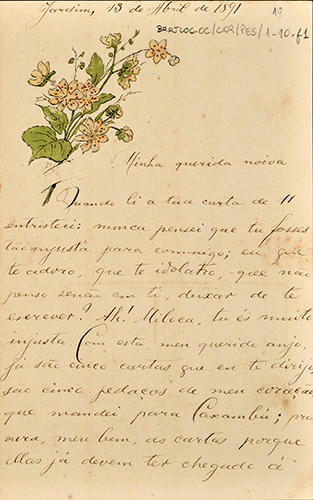 Jardim, 13 de Abril de 1891
19
BRRJCOC.OC/COR/PES/1-10.f1
Minha querida noiva
Quando li a tua carta de 11
entristeci: nunca pensei que tu fosses
tão injusta para commigo; eu que
te adoro, que te idolatro, que não
penso senão em ti, deixar de te
escrever? Ah! Miloca, tu és muito
injusta Com esta meu querido anjo,
já são cinco cartas que eu te dirijo
são cinco pedaços de meu coração
que mandei para Caxambú; pro
cura, meu bem, as cartas porque
ellas já devem ter chegado á